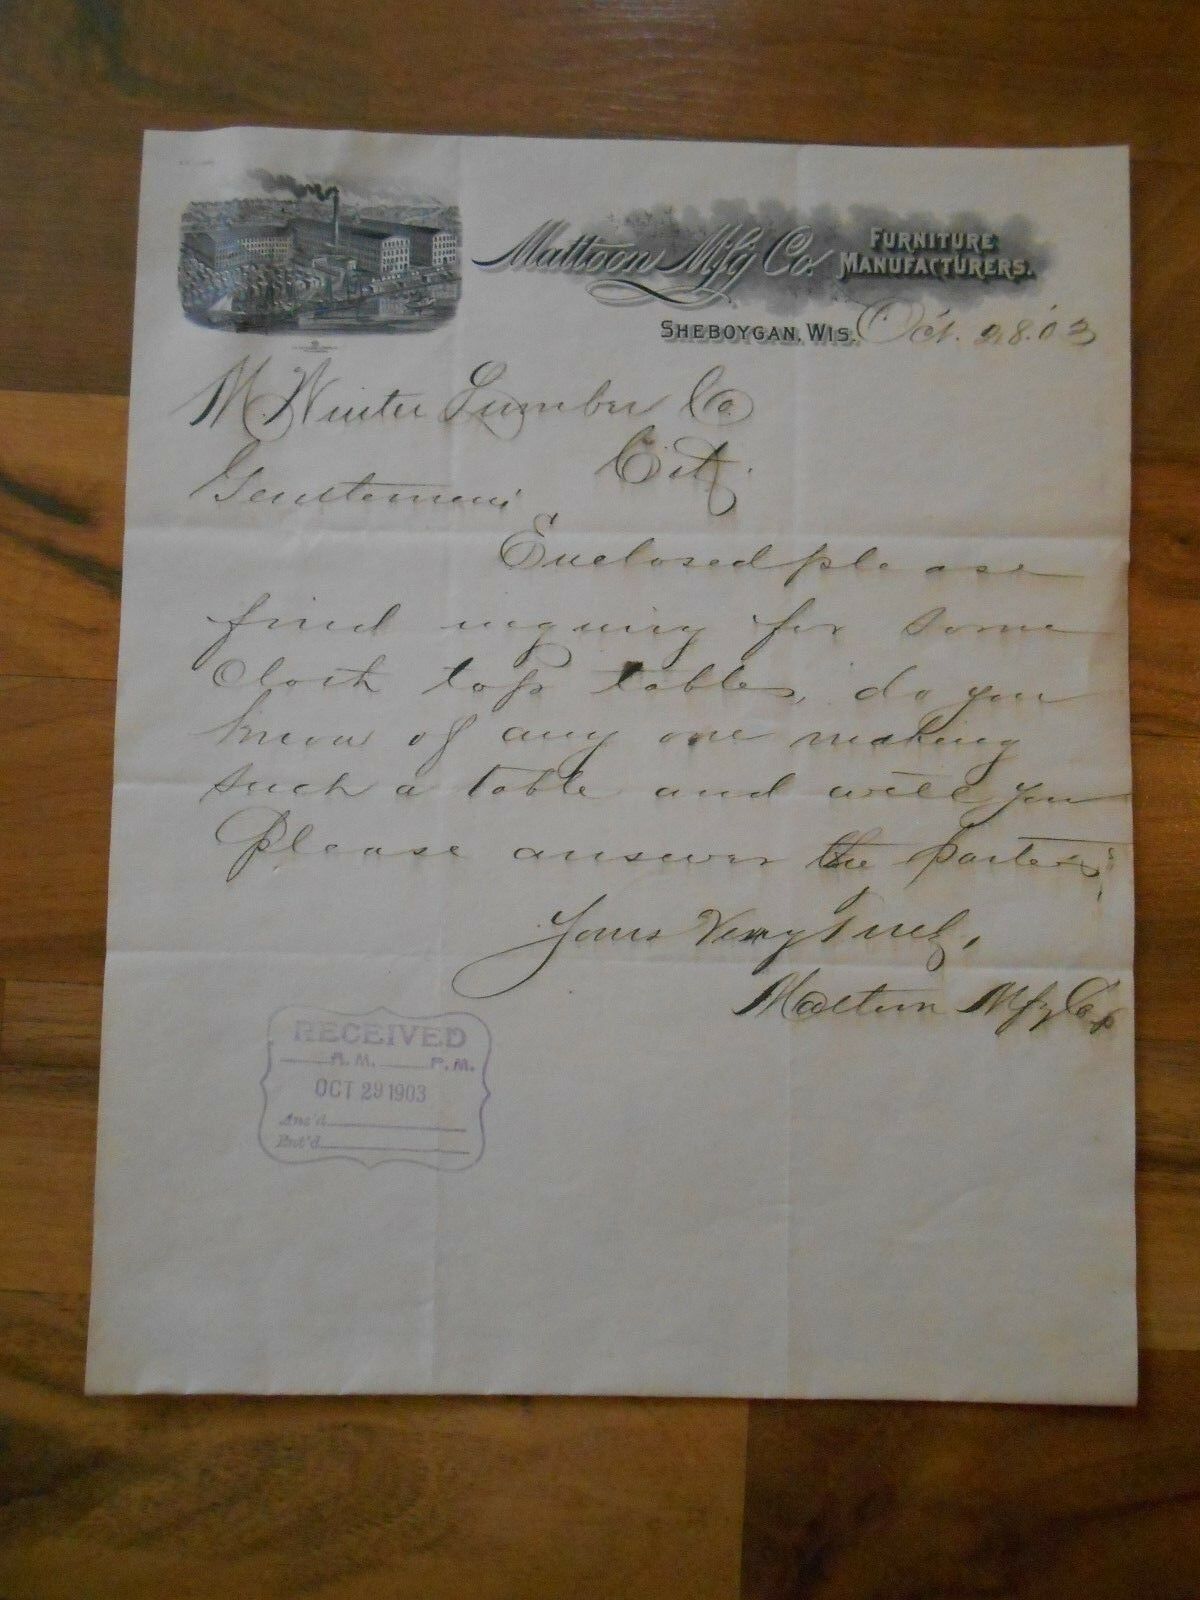 Mattoon Mfg Co.
FURNITURE
MANUFACTURERS.
SHEBOYGAN, WIS. Oct. 28. 03
M. Winter Lumber Co.
City.
Gentlemen:
Enclosed please
find inquiry for some
Cloth top tables, do you
know of any one making
such a table and will you
Please answer the parties.
Yours Very Truly,
Mattoon Mfg Co
RECEIVED
A. M. P. M.
OCT 29 1903
Ans'd
Ent'd